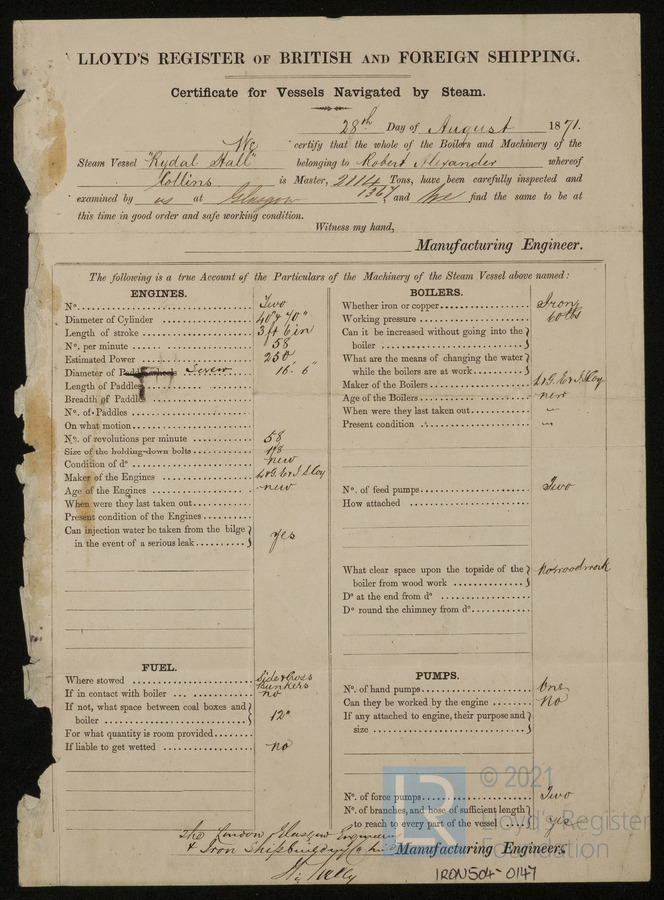 LLOYD'S REGISTER OF BRITISH AND FOREIGN SHIPPING.
Certificate for Vessels Navigated by Steam.
28th Day of August 1871.
We certify that the whole of the Boilers and Machinery of the
Steam Vessel "Rydal Hall" belonging to Robert Alexander whereof
Collins is Master, 2114 Tons, have been carefully inspected and
1367
examined by us at Glasgow and We find the same to be at
this time in good order and safe working condition.
Witness my hand,
Manufacturing Engineer.
The following is a true Account of the Particulars of the Machinery of the Steam Vessel above named:
ENGINES.
No. Two
Diameter of Cylinder 40" & 70"
Length of stroke 3 ft 6 in
No. per minute 58
Estimated Power 250
Diameter of Paddle Screw 16' 6"
Length of Paddles
Breadth of Paddles
No. of Paddles
On what motion
No. of revolutions per minute 58
Size of the holding-down bolts 1⅞
Condition of do new
Maker of the Engines L & G. E & I S Coy
Age of the Engines new
When were they last taken out
Present condition of the Engines
Can injection water be taken from the bilge
in the event of a serious leak yes
FUEL.
Where stowed Side & Cross
Bunkers
If in contact with boiler no
If not, what space between coal boxes and
boiler 12"
For what quantity is room provided
If liable to get wetted no
BOILERS.
Whether iron or copper Iron
Working pressure 60 lbs
Can it be increased without going into the
boiler
What are the means of changing the water
while the boilers are at work
Maker of the Boilers L & G. E & I. S Coy
Age of the Boilers new
When were they last taken out "
Present condition "
No. of feed pumps Two
How attached
What clear space upon the topside of the
boiler from wood work no woodwork
Do at the end from do
Do round the chimney from do
PUMPS.
No. of hand pumps One
Can they be worked by the engine No
If any attached to engine, their purpose and
size
No. of force pumps Two
No. of branches, and hose of sufficient length
to reach to every part of the vessel yes
The London & Glasgow Engineering
& Iron Shipbuilding Co Manufacturing Engineers
IRON504-0147
© 2021
Lloyd's Register
Foundation
LR